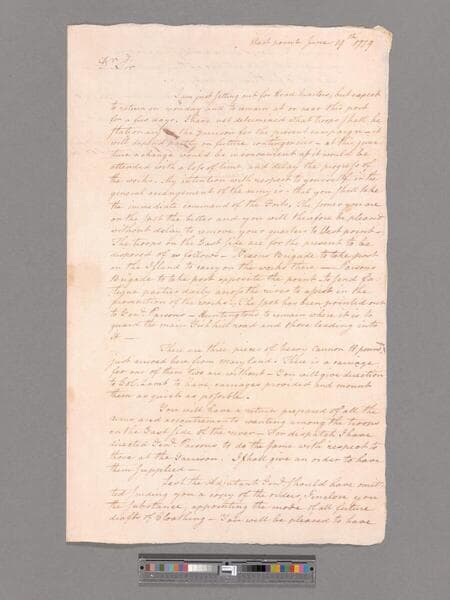 West point June 19th 1779
Dr. Sr.
I am just setting out for Head Quarters, but expect
to return on monday and to remain at or near this post
for a few days. I have not determined what troops shall be
Stationary in the Garrison for the present campaign – it
will depend partly on future contingencies – at this junc-
ture a change would be inconvenient as it would be
attended with a loss of time and delay the progress of
the works. My intention with respect to yourself in the
general arrangement of the army is – that you shall take
the immediate command of the Forts. The sooner you are
on the spot the better and you will therefore be pleased
without delay to remove your quarters to West point –
The troops on the East side are for the present to be
disposed of as follows – Nixons Brigade to take post
on the Island to carry on the works there — Parsons
Brigade to take post opposite the point & send Fa-
tigue parties daily across the river to assist in the
prosecution of the works. The spot has been pointed out
to Genl. Parsons – Huntingtons to remain where it is to
guard the main Fish kill road and those leading into
it —
There are three pieces of heavy cannon 18 pounders
just arrived here from Maryland. There is a carriage
for one of them two are without – You will give direction
to Col. Lamb to have carriages provided and mount
them as quick as possible.
You will have a return prepared of all the
arms and accoutrements wanting among the troops
on the East side of the river – For despatch I have
directed Genl. Parsons to do the same with respect to
those at the Garrison. I shall give an order to have
them supplied –
Lest the Adjutant Genl. should have omit-
ted sending you a copy of the orders, I inclose you
the substance, appointing the mode of all future
drafts of Cloathing – You will be pleased to have